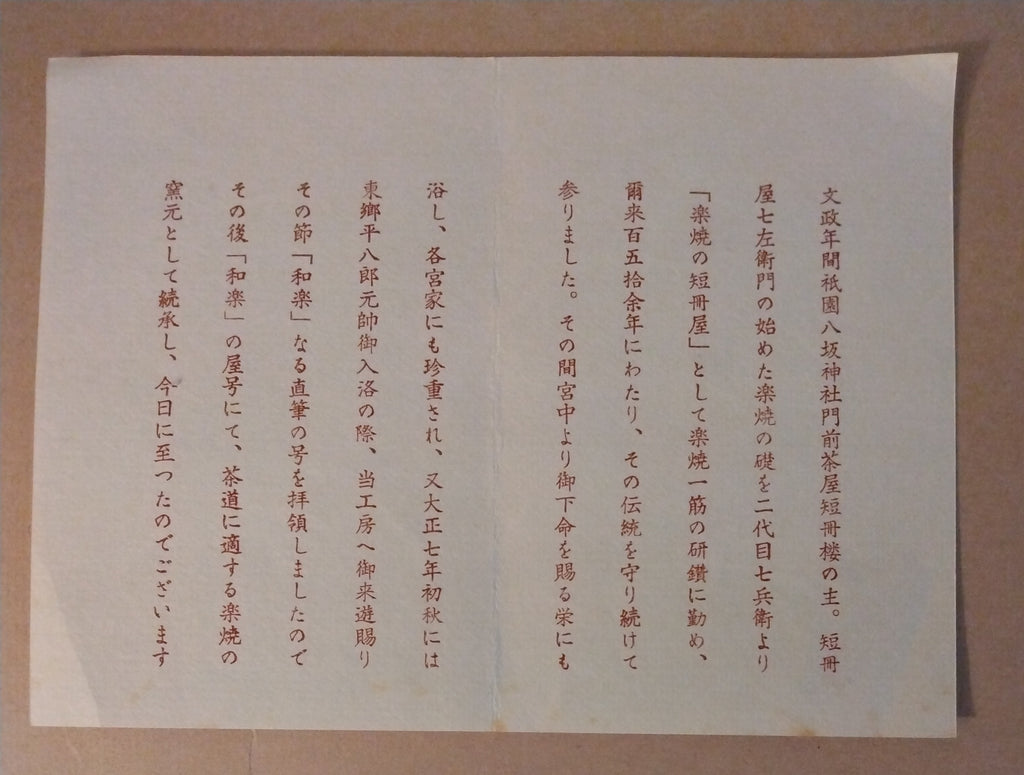 文政年間祇園八坂神社門前茶屋短冊楼の主。短冊
屋七左衛門の始めた楽焼の礎を二代目七兵衛より
「楽焼の短冊屋」として楽焼一筋の研鑽に勤め、
爾来百五拾余年にわたり、その伝統を守り続けて
参りました。その間宮中より御下命を賜る栄にも
浴し、各宮家にも珍重され、又大正七年初秋には
東郷平八郎元帥御入洛の際、当工房へ御来遊賜り
その節「和楽」なる直筆の号を拝領しましたので
その後「和楽」の屋号にて、茶道に適する楽焼の
窯元として続承し、今日に至つたのでございます